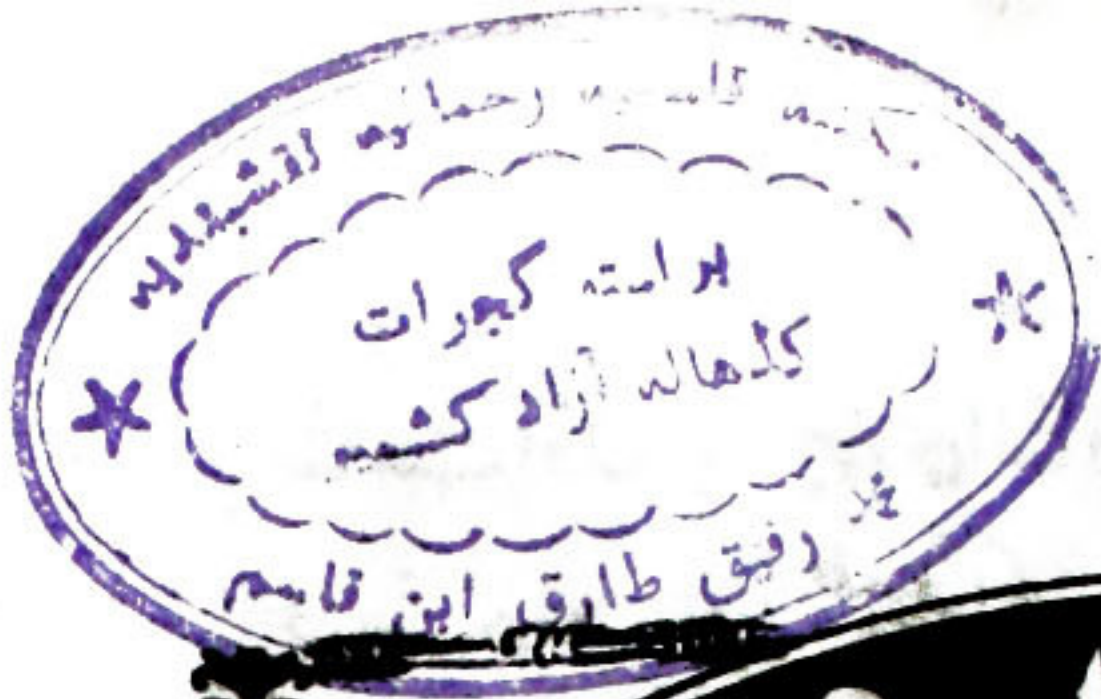 قاسمیہ رحمانیہ نقشبندیہ
براستہ گجرات
آزاد کشمیر
محمد رفیق طارق ابن قاسم